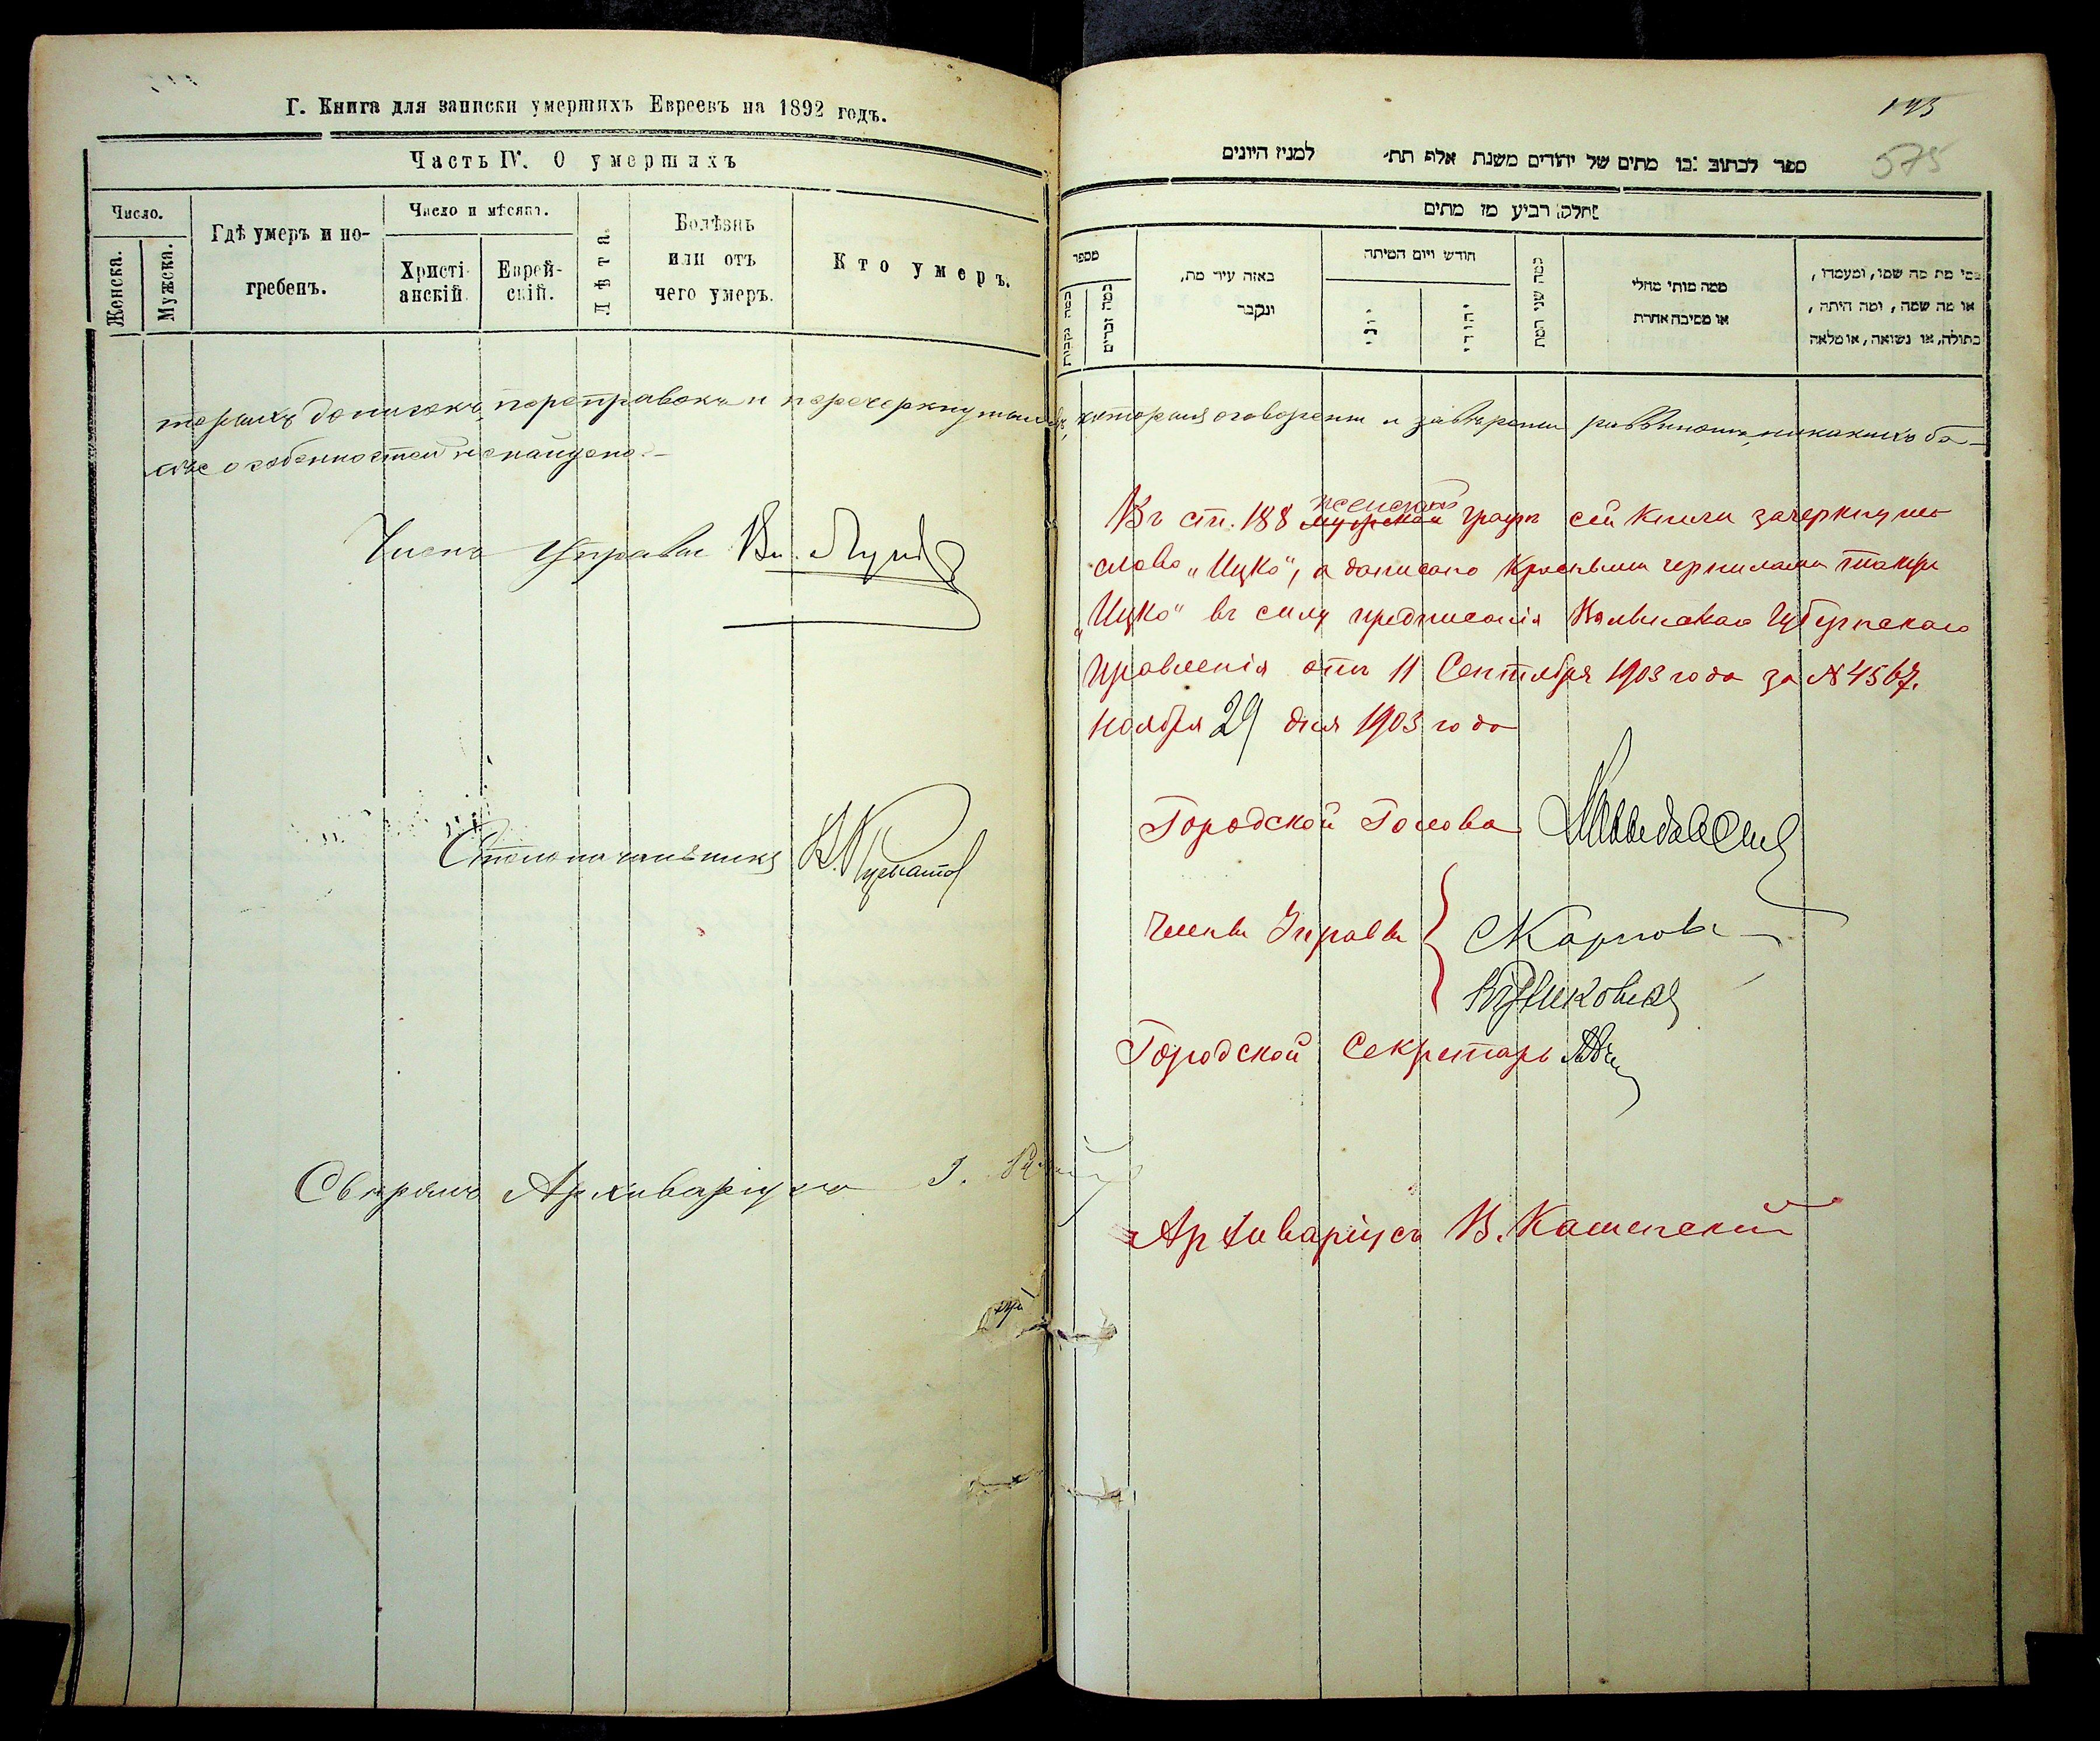 Г. Книга для записки умершихъ Евреевъ на 1892 годъ.
Часть IV. О умершихъ
Число.
Женска.
Мужска.
Гдѣ умеръ и по-
гребенъ.
Число и мѣсяцъ.
Христі-
анскій.
Еврей-
скій.
Лѣта.
Болѣзнь
или отъ
чего умеръ.
Кто умеръ.
торыхъ дописокъ, переправокъ и перечеркнутыхъ, которыя оговорены и завѣрены раввиномъ, никакихъ бо-
лѣе особенностей не найдено.—
Членъ Управы
Столоначальникъ
Свѣрялъ Архиваріусъ
575
ספר לכתוב בו מתים של יהודים משנת אלף תת׳ למנין היונים
חלק רביע מן מתים
מספר
כמה נקבות
כמה זכרים
באזה עיר מת,
ונקבר
חודש ויום המיתה
יוני
יהודי
כמה שני המת
ממה מותי מחלי
או מסיבה אחרת
מי מת מה שמו, ומעמדו,
או מה שמה, ומה היתה,
בתולה, או נשואה, או מלאה
женской
Въ ст. 188 мужской графѣ сей книги зачеркнуто
слово „Ицко", а дописано красными чернилами также
„Ицко" въ силу предписанія Губернскаго
Правленія отъ 11 Сентября 1903 года за № 4567.
Ноября 29 дня 1903 года
Городской Голова
Члены Управы
Карповъ
Городской Секретарь
Архиваріусъ В. Каменскій